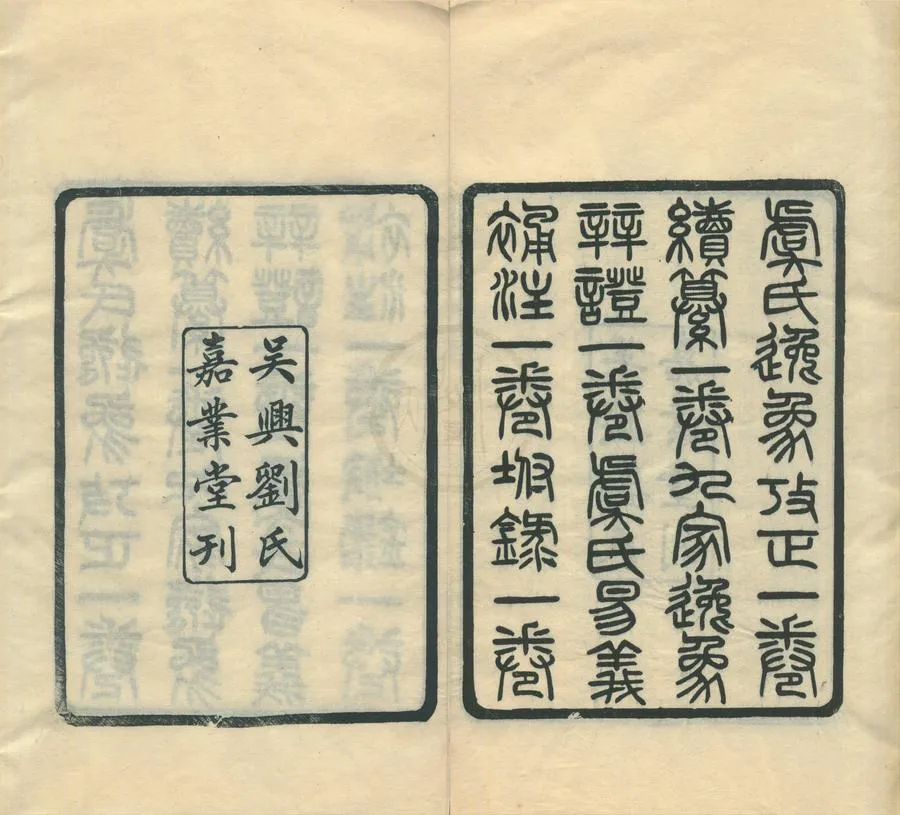 虞氏逸象攷正一卷
續纂一卷九家逸象
辨證一卷虞氏易義
補注一卷坿錄一卷
吴興劉氏
嘉業堂刊